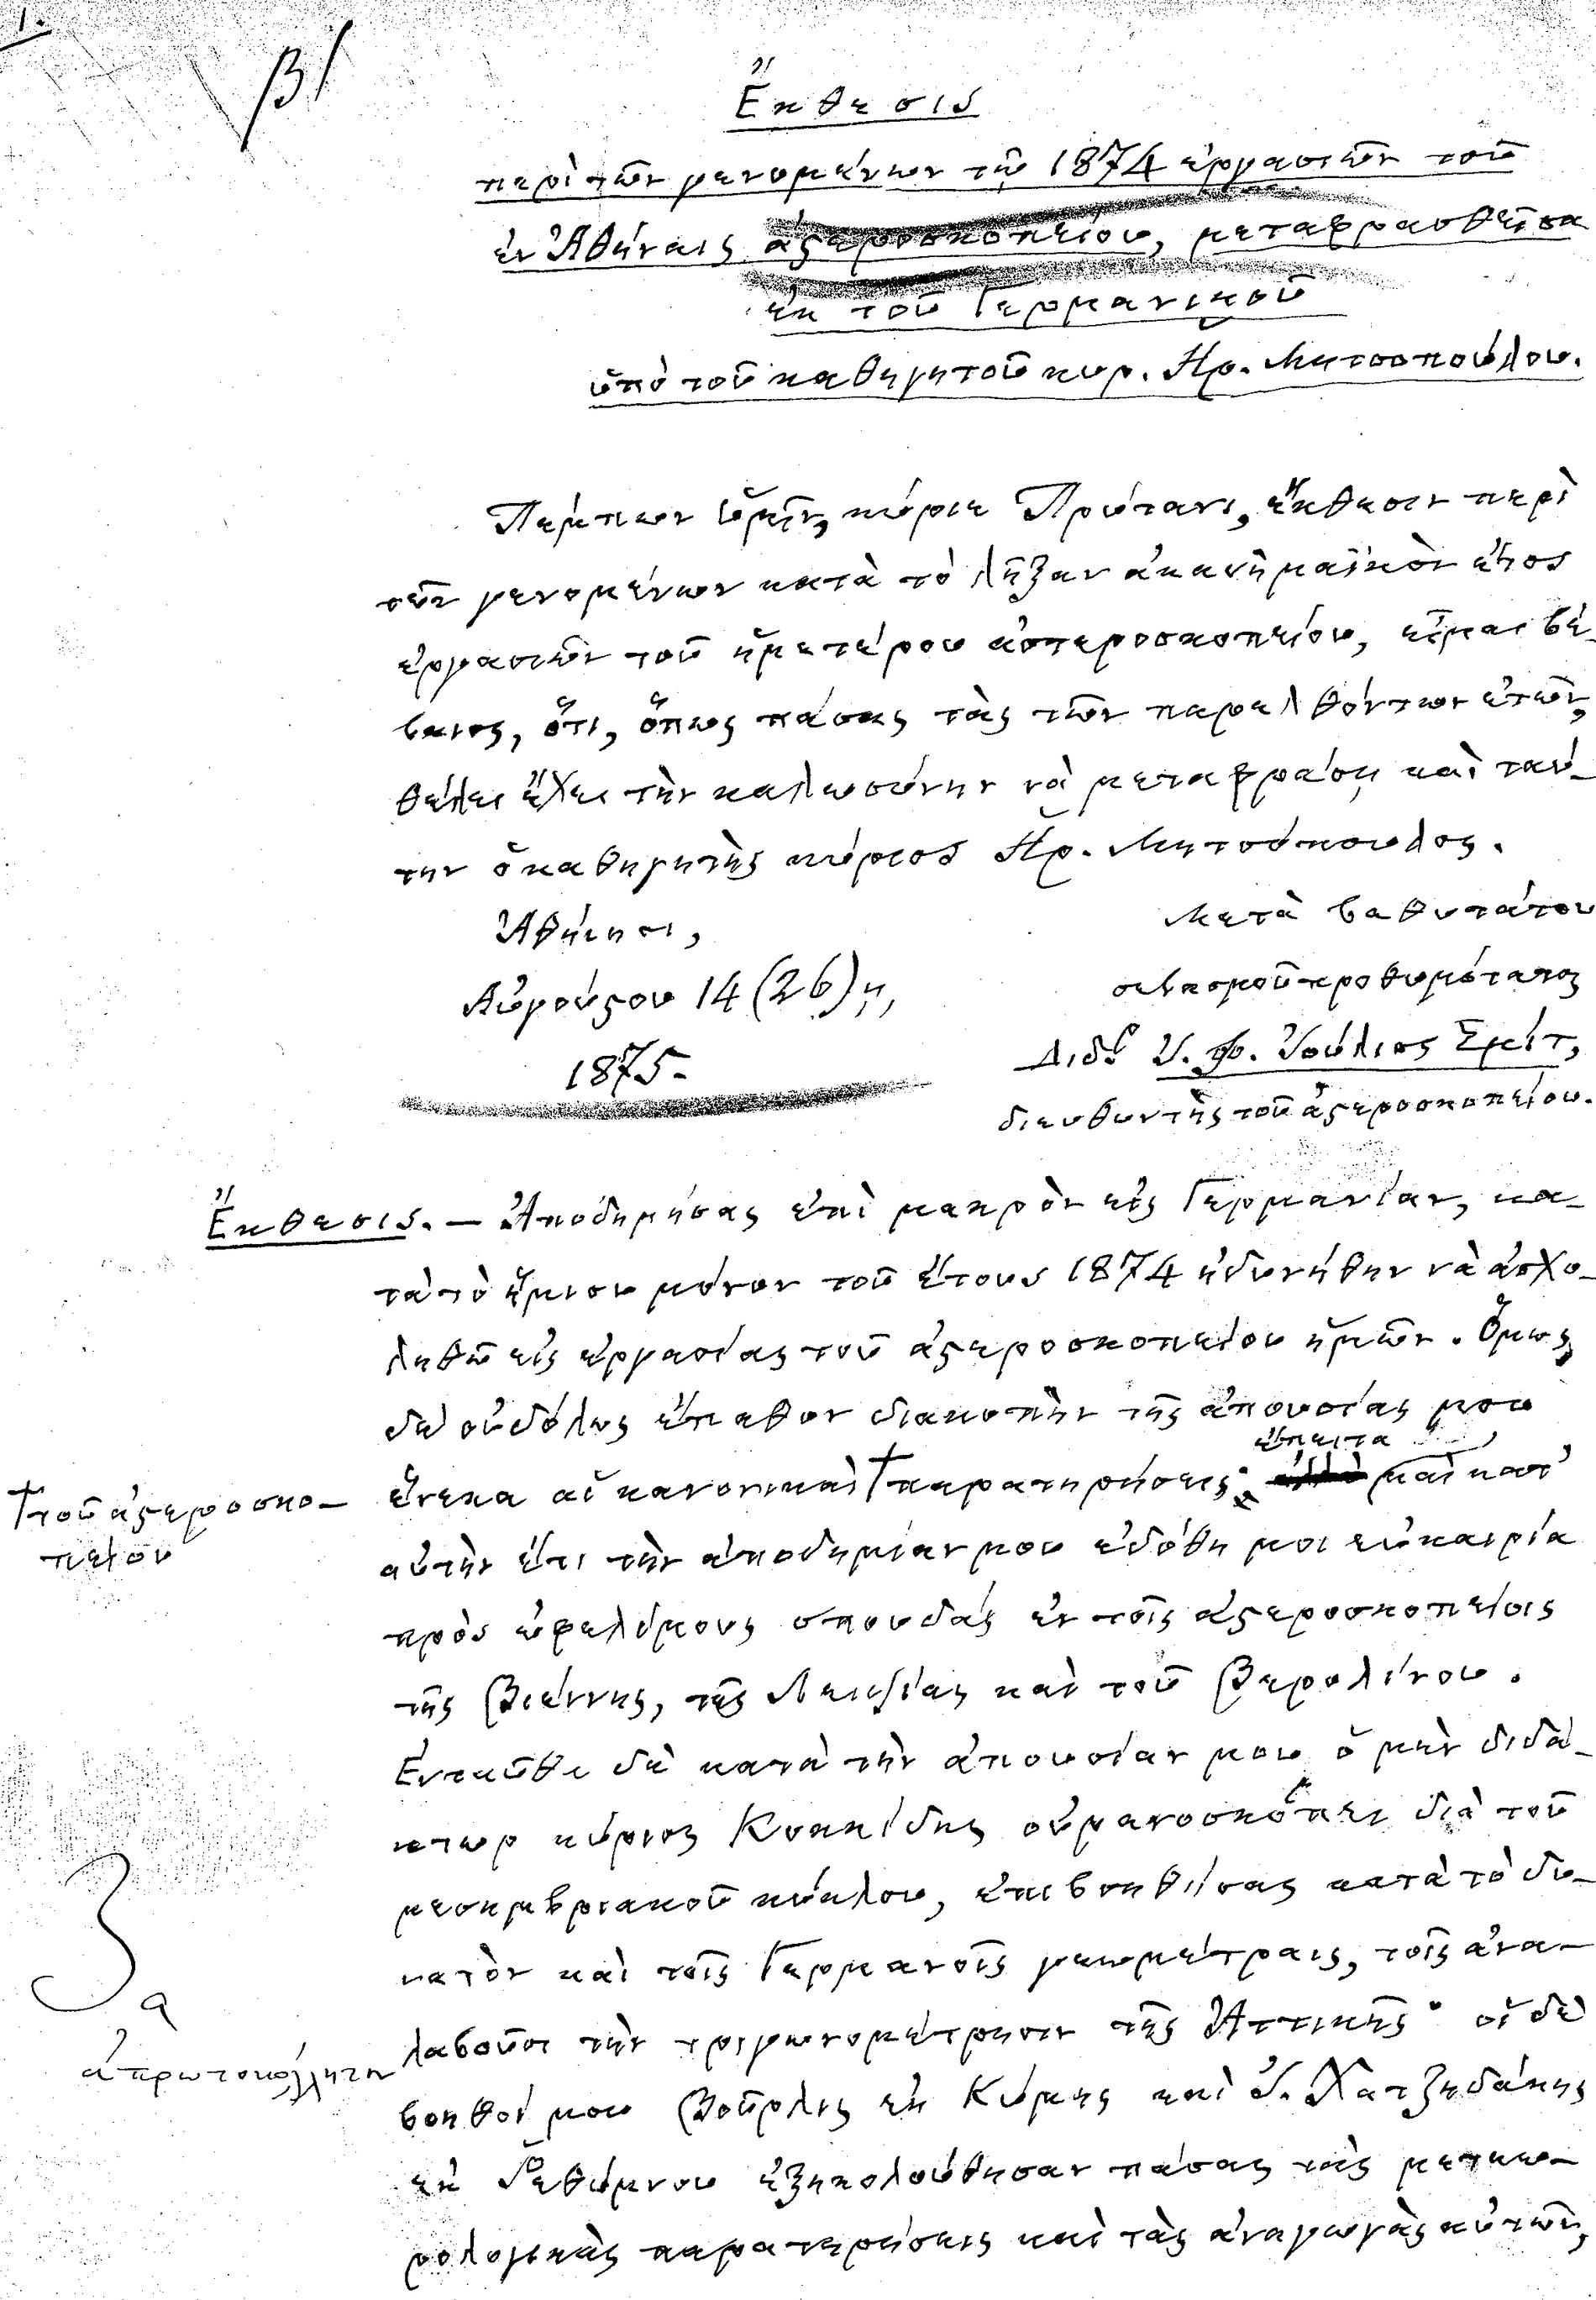 1.
β′
Ἔκθεσις
περὶ τῶν γενομένων τῷ 1874 ἐργασιῶν τοῦ
ἐν Ἀθήναις ἀστεροσκοπείου, μεταφρασθεῖσα
ἐκ τοῦ Γερμανικοῦ
ὑπὸ τοῦ καθηγητοῦ κυρ. Ἡρ. Μητσοπούλου.
Πέμπων ὑμῖν, κύριε Πρύτανι, ἔκθεσιν περὶ
τῶν γενομένων κατὰ τὸ λῆξαν ἀκαδημαϊκὸν ἔτος
ἐργασιῶν τοῦ ἡμετέρου ἀστεροσκοπείου, εἶμαι βέ-
βαιος, ὅτι, ὅπως πάσας τὰς τῶν παρελθόντων ἐτῶν,
θέλει ἔχει τὴν καλωσύνην νὰ μεταφράσῃ καὶ ταύ-
την ὁ καθηγητὴς κύριος Ἡρ. Μητσόπουλος.
Ἀθήνησι,
Αὐγούστου 14 (26)ῃ,
1875.
Μετὰ βαθυτάτου
σεβασμοῦ προθυμότατος
Διδρ Ἰ. Φ. Ἰούλιος Σμίτ,
διευθυντὴς τοῦ ἀστεροσκοπείου.
Ἔκθεσις. — Ἀποδημήσας ἐπὶ μακρὸν εἰς Γερμανίαν, κα-
τὰ τὸ ἥμισυ μόνον τοῦ ἔτους 1874 ἠδυνήθην νὰ ἀσχο-
ληθῶ εἰς ἐργασίας τοῦ ἀστεροσκοπείου ἡμῶν. Ὅμως
δὲ οὐδόλως ἔπαθον διακοπὴν τῆς ἀπουσίας μου
ἔπειτα
ἕνεκα αἱ κανονικαὶ † παρατηρήσεις· καὶ κατ’
† τοῦ ἀστεροσκο-
πείου
αὐτὴν ἔτι τὴν ἀποδημίαν μου ἐδόθη μοι εὐκαιρία
πρὸς ὠφελίμους σπουδὰς ἐν τοῖς ἀστεροσκοπείοις
τῆς Βιέννης, τῆς Λειψίας καὶ τοῦ Βερολίνου.
Ἐνταῦθα δὲ κατὰ τὴν ἀπουσίαν μου ὁ μὲν διδά-
κτωρ κύριος Κοκκίδης οὐρανοσκόπει διὰ τοῦ
μεσημβριακοῦ κύκλου, ἐπιβοηθήσας κατὰ τὸ δυ-
νατὸν καὶ τοῖς Γερμανοῖς γεωμέτραις, τοῖς ἀνα-
λαβοῦσι τὴν τριγωνομέτρησιν τῆς Ἀττικῆς· οἱ δὲ
ἀπρωτοκόλλητη
βοηθοί μου Βοῦρλις ἐκ Κύμης καὶ Ἰ. Χατζηδάκης
ἐκ Ῥεθύμνου ἐξηκολούθησαν πάσας τὰς μετεω-
ρολογικὰς παρατηρήσεις καὶ τὰς ἀναγωγὰς αὐτῶν,